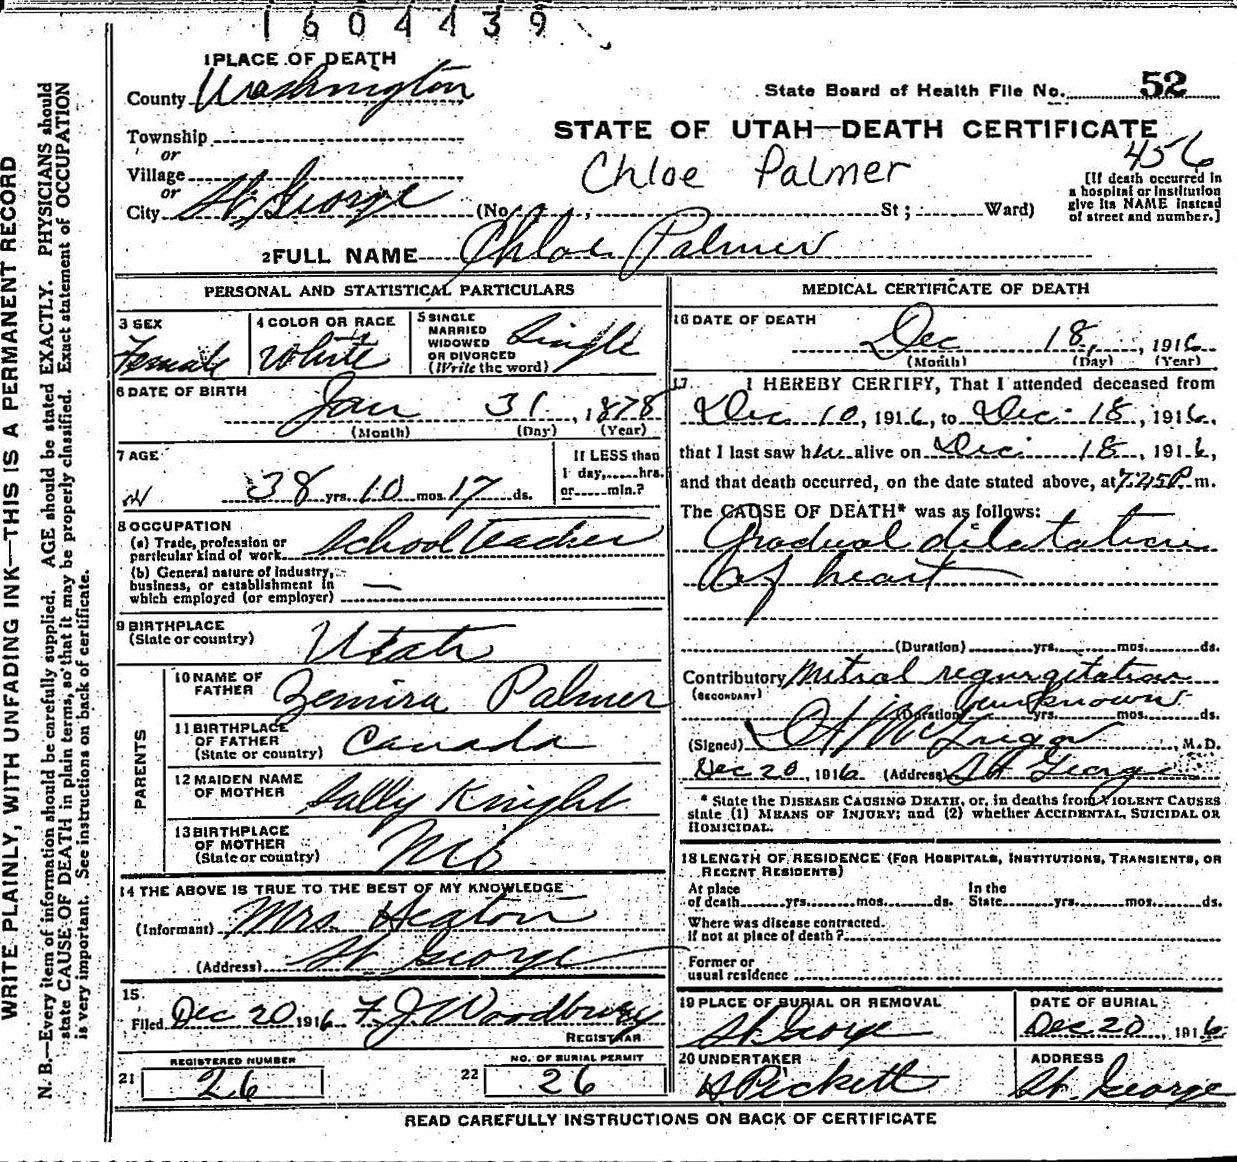 1604439
1 PLACE OF DEATH
County Washington
State Board of Health File No. 52
Township
or
Village
or
City St. George (No. , St; Ward)
STATE OF UTAH—DEATH CERTIFICATE
456
Chloe Palmer
[If death occurred in
a hospital or institution
give its NAME instead
of street and number.]
2 FULL NAME Chloe Palmer
PERSONAL AND STATISTICAL PARTICULARS
3 SEX
Female
4 COLOR OR RACE
White
5 SINGLE
MARRIED
WIDOWED
OR DIVORCED
(Write the word)
Single
6 DATE OF BIRTH
Jan 31, 1878
(Month) (Day) (Year)
7 AGE
38 yrs. 10 mos. 17 ds.
If LESS than
1 day, hrs.
or min.?
8 OCCUPATION
(a) Trade, profession or
particular kind of work School Teacher
(b) General nature of industry,
business, or establishment in
which employed (or employer) —
9 BIRTHPLACE
(State or country) Utah
PARENTS
10 NAME OF
FATHER Zemira Palmer
11 BIRTHPLACE
OF FATHER
(State or country) Canada
12 MAIDEN NAME
OF MOTHER Sally Knight
13 BIRTHPLACE
OF MOTHER
(State or country) Mo
14 THE ABOVE IS TRUE TO THE BEST OF MY KNOWLEDGE
(Informant) Mrs. Heaton
(Address) St George
15
Filed Dec 20 1916 F. J. Woodbury
REGISTRAR
REGISTERED NUMBER
21 26
NO. OF BURIAL PERMIT
22 26
MEDICAL CERTIFICATE OF DEATH
16 DATE OF DEATH
Dec 18, 1916
(Month) (Day) (Year)
17 I HEREBY CERTIFY, That I attended deceased from
Dec 10, 1916, to Dec. 18, 1916,
that I last saw her alive on Dec. 18, 1916,
and that death occurred, on the date stated above, at 7:25 P. m.
The CAUSE OF DEATH* was as follows:
Gradual dilatation
of heart
(Duration) yrs. mos. ds.
Contributory Mitral regurgitation
(SECONDARY)
unknown
(Duration) yrs. mos. ds.
(Signed) McGregor, M.D.
Dec 20, 1916 (Address) St George
* State the DISEASE CAUSING DEATH, or, in deaths from VIOLENT CAUSES
state (1) MEANS OF INJURY; and (2) whether ACCIDENTAL, SUICIDAL OR
HOMICIDAL.
18 LENGTH OF RESIDENCE (FOR HOSPITALS, INSTITUTIONS, TRANSIENTS, OR
RECENT RESIDENTS)
At place
of death yrs. mos. ds.
In the
State yrs. mos. ds.
Where was disease contracted.
if not at place of death?
Former or
usual residence
19 PLACE OF BURIAL OR REMOVAL
St. George
DATE OF BURIAL
Dec 20, 1916
20 UNDERTAKER
Pickett
ADDRESS
St. George
READ CAREFULLY INSTRUCTIONS ON BACK OF CERTIFICATE
WRITE PLAINLY, WITH UNFADING INK—THIS IS A PERMANENT RECORD
N. B.—Every item of information should be carefully supplied. AGE should be stated EXACTLY. PHYSICIANS should
state CAUSE OF DEATH in plain terms, so that it may be properly classified. Exact statement of OCCUPATION
is very important. See instructions on back of certificate.